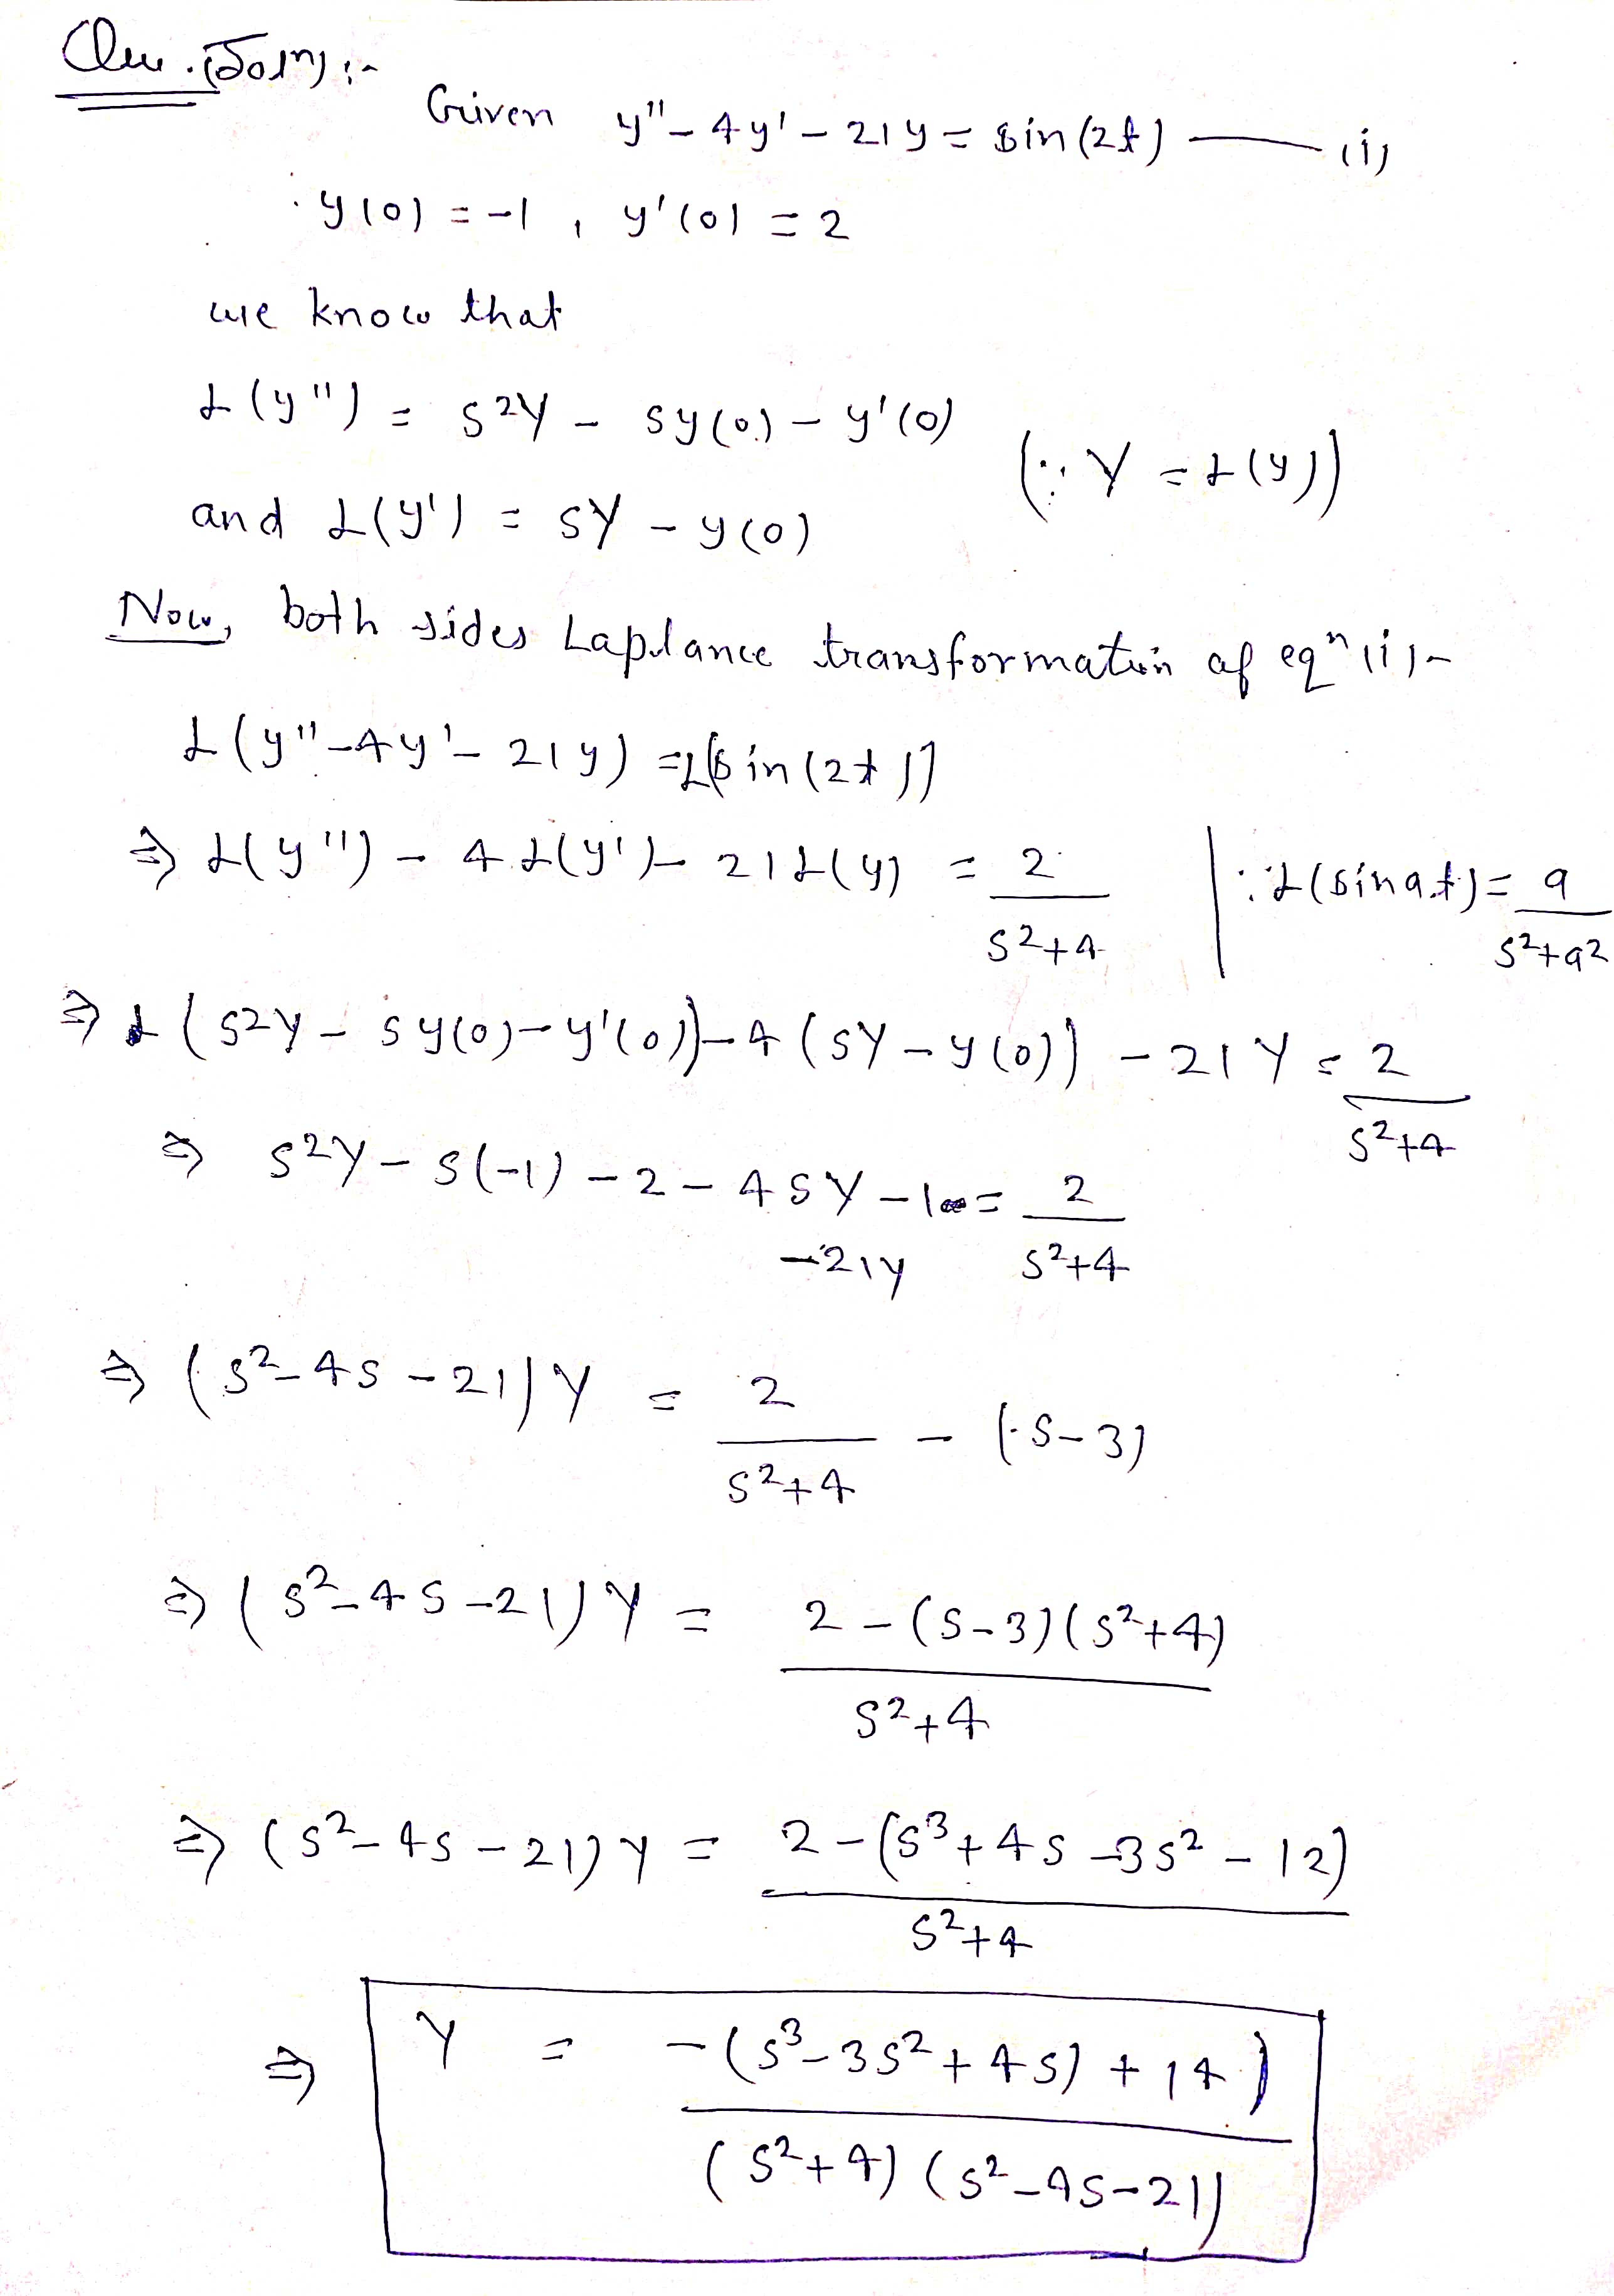 Que. (Solⁿ) :-
Given y'' - 4y' - 21y = sin(2t) —— (i)
y(0) = -1 , y'(0) = 2
we know that
L(y'') = s²Y - sy(0) - y'(0)
(∵ Y = L(y))
and L(y') = sY - y(0)
Now, both sides Laplance transformation of eqⁿ (i) -
L(y'' - 4y' - 21y) = L(sin(2t))
⇒ L(y'') - 4L(y') - 21L(y) = 2/(s²+4) | ∵ L(sin at) = a/(s²+a²)
⇒ (s²Y - sy(0) - y'(0)) - 4(sY - y(0)) - 21Y = 2/(s²+4)
⇒ s²Y - s(-1) - 2 - 4sY - 1 = 2/(s²+4)
-21Y
⇒ (s² - 4s - 21)Y = 2/(s²+4) - (s-3)
⇒ (s² - 4s - 21)Y = 2 - (s-3)(s²+4) / s²+4
⇒ (s² - 4s - 21)Y = 2 - (s³ + 4s - 3s² - 12) / s²+4
⇒ Y = -(s³ - 3s² + 4s) + 14) / (s²+4)(s² - 4s - 21)